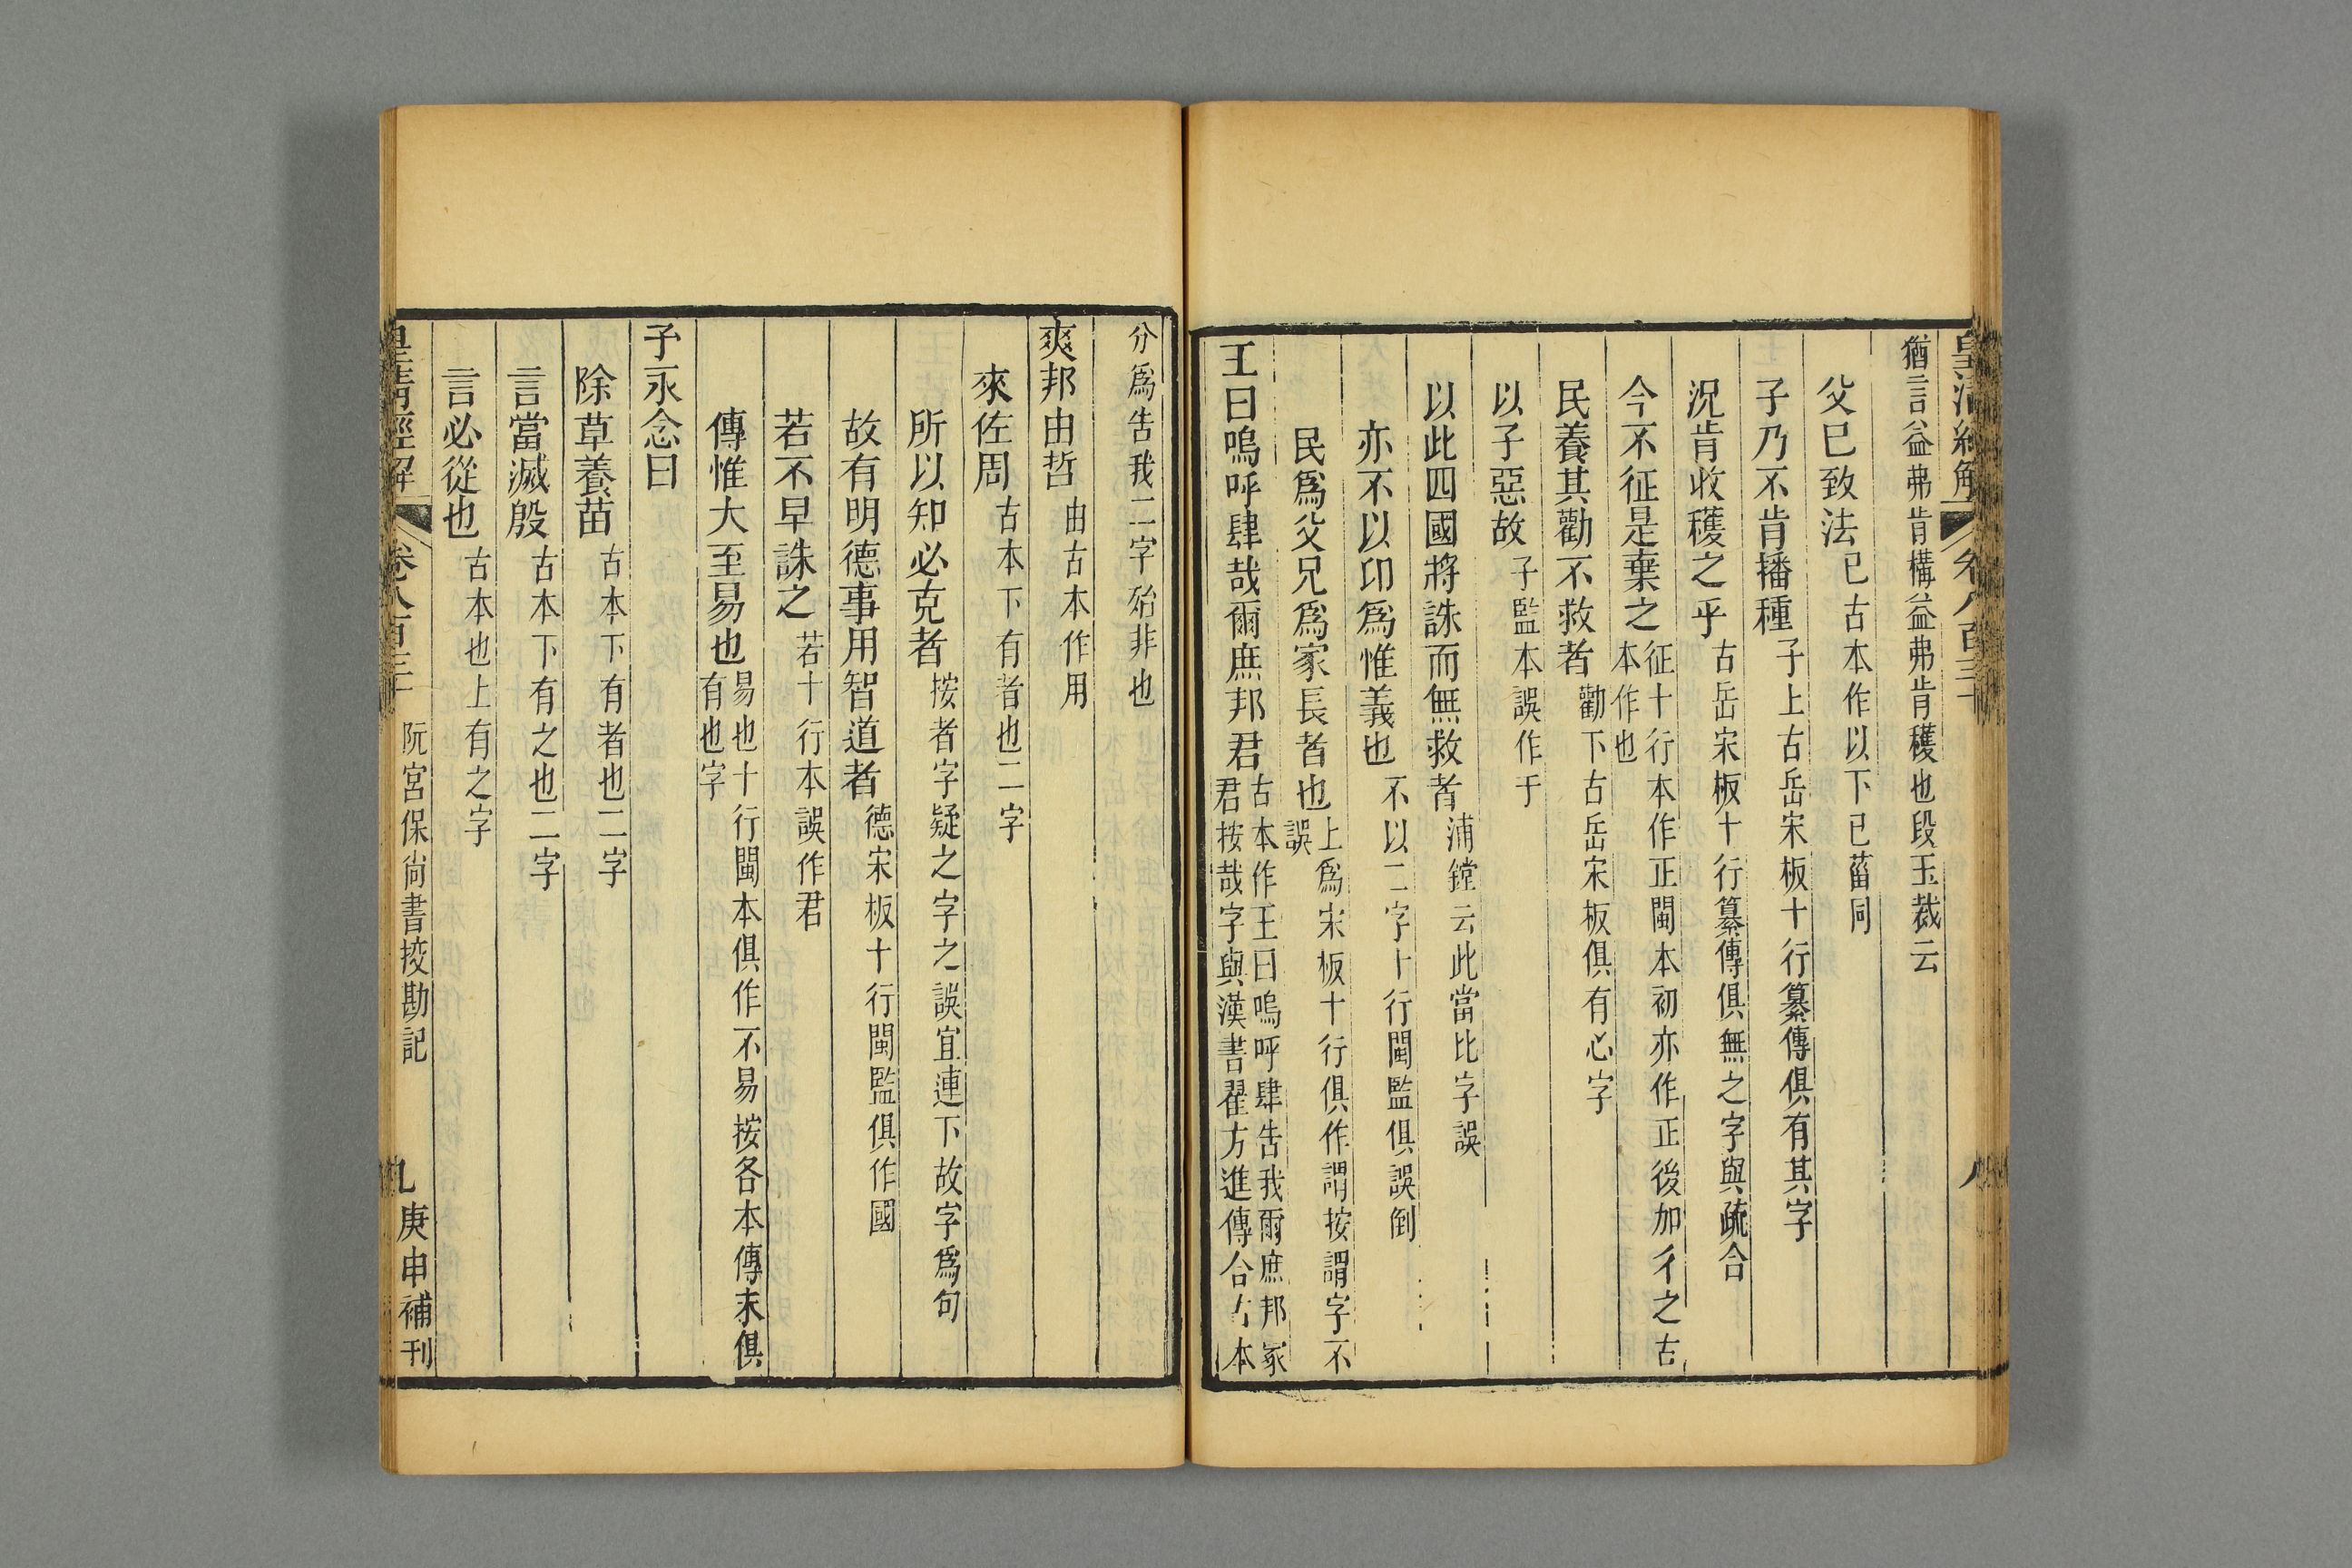 皇清經解 卷八百三十 八
猶言益弗肯構益弗肯穫也段玉裁云
父已致法已古本作以下已菑同
子乃不肯播種子上古岳宋板十行纂傳俱有其字
況肯收穫之乎古岳宋板十行纂傳俱無之字與疏合
今不征是棄之征十行本作正閩本初亦作正後加彳之古
本作也
民養其勸不救者勸下古岳宋板俱有心字
以子惡故子監本誤作于
以此四國將誅而無救者浦鏜云此當比字誤
亦不以卬爲惟義也不以二字十行閩監俱誤倒
民爲父兄爲家長者也上爲宋板十行俱作謂按謂字不
誤
王曰嗚呼肆哉爾庶邦君古本作王曰嗚呼肆告我爾庶邦冢
君按哉字與漢書翟方進傳合古本
分爲告我二字殆非也
爽邦由哲由古本作用
來佐周古本下有者也二字
所以知必克者按者字疑之字之誤宜連下故字爲句
故有明德事用智道者德宋板十行閩監俱作國
若不早誅之若十行本誤作君
傳惟大至易也易也十行閩本俱作不易按各本傳末俱
有也字
予永念曰
除草養苗古本下有者也二字
言當滅殷古本下有之也二字
言必從也古本也上有之字
皇清經解 卷八百三十 阮宮保尚書挍勘記 九 庚申補刊